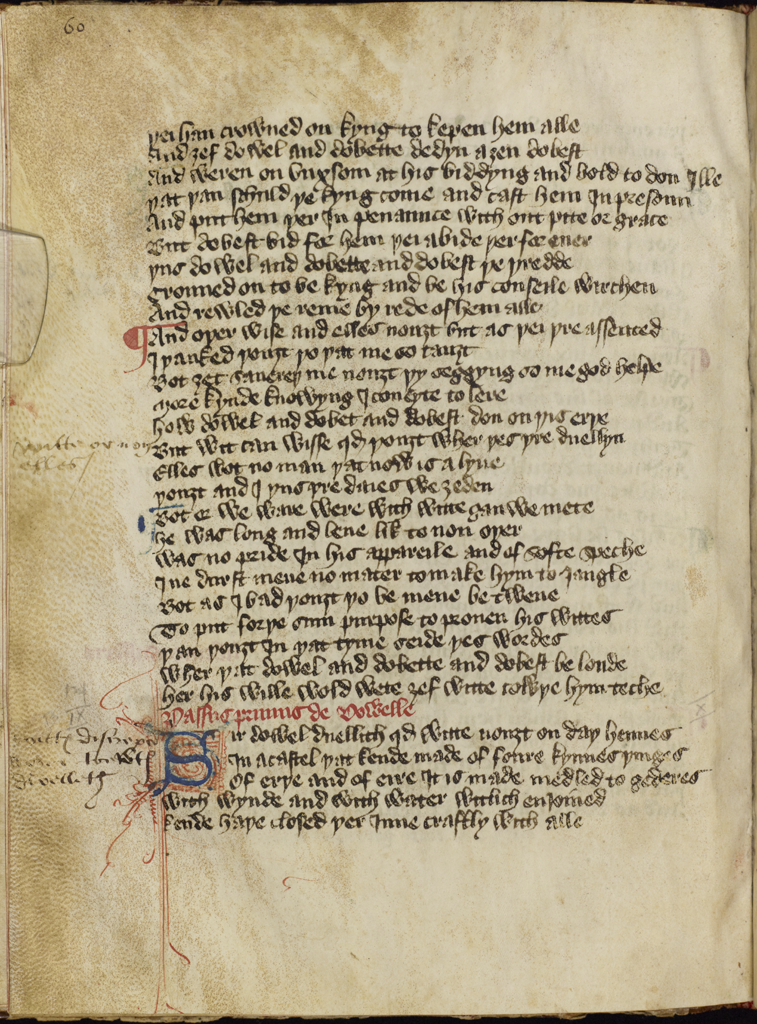 60
þei han crowned on kyng to kepen hem alle
And ȝef dowel and dobette dedyn aȝen dobest
And weren on vnxsom at his biddyng and bold to don Ille
þat þan schuld þe kyng come and cast hem In presoun
And putt hem þer In penaunce with out pite or grace
Butt dobest bid for hem þei abide þer for euer
þus dowel and dobette and dobest þe þredde
Crouned on to be kyng and be his conseile wirchen
And rewled þe reme by rede of hem alle
And oþer wise and elles nouȝt but as þei þre assented
I þanked þouȝt þo þat me so tauȝt
Bot ȝet sauereþ me nouȝt þy seggyng so me god helpe
More kynde knowyng I coueyte to lere
how dowel and dobet and dobest don on þis erþe
But wit can wisse qd þouȝt wher þes þre duellyn
Elles wot no man þat now is a lyue
þouȝt and I þus þre daies we ȝeden
Bot er we ware were with witte gan we mete
he was long and lene lik to non oþer
was no pride In his appareile and of softe speche
I ne durst meue no mater to make hym to Iangle
Bot as I bad þouȝt þo be mene be twene
To putt forþe sum purpose to prouen his wittes
þan þouȝt In þat tyme seide þes wordes
Wher þat dowel and dobette and dobest be londe
her his wille wold wete ȝef witte cowþe hym teche
Passus primus de Dowelle
Sir dowel duellith qd witte nouȝt on day hennes
In a castel þat kende made of foure kynnes þinges
Of erþe and of eire It is made medled to gederes
with wynde and with water wittich enioined
kende haþe closed þer Inne craftly with alle
witte or non
elles
dwelleth